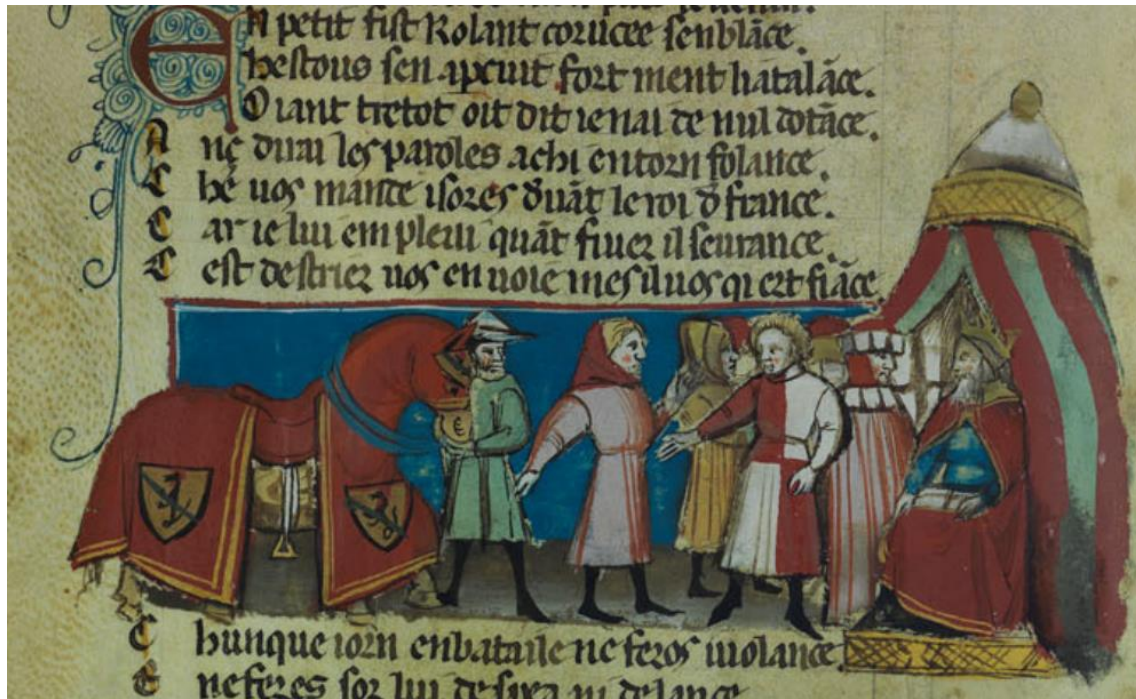 En petit fist Rolant corucee senblãce.
hestous sen apcuit fort ment hatalãce.
Oiant tretot oit dit ie nai de nul dotãce.
A nç dirai les paroles achi entorn folance.
C he uos mante isores dũãt le roi d france.
C ar ie lui em pleui quãt fiuez il seurance.
C est destrier uos en uoie mes il uos qi ert fiãce
C hunque iorn en bataile ne feros uiolance.
E ne feres sor lui de spea ni de lance